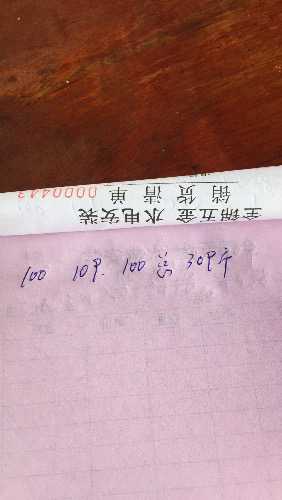 锦五金 水电安装
销货清单 0000443
100 109. 100 总 309斤